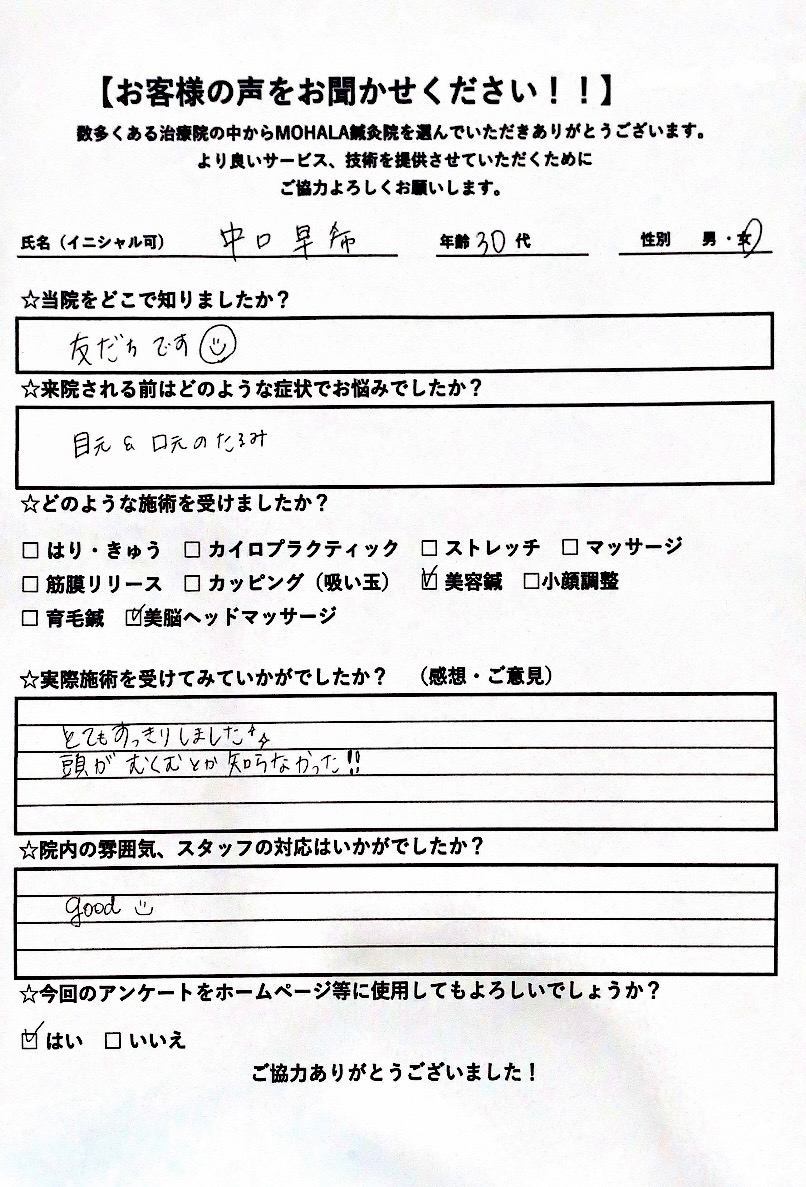 【お客様の声をお聞かせください！！】
数多くある治療院の中からMOHALA鍼灸院を選んでいただきありがとうございます。
より良いサービス、技術を提供させていただくために
ご協力よろしくお願いします。
氏名（イニシャル可） 中口 早希 年齢 30 代 性別 男・女
☆当院をどこで知りましたか？
友だちです
☆来院される前はどのような症状でお悩みでしたか？
目元 & 口元のたるみ
☆どのような施術を受けましたか？
□ はり・きゅう □ カイロプラクティック □ ストレッチ □ マッサージ
□ 筋膜リリース □ カッピング（吸い玉） ☑ 美容鍼 □小顔調整
□ 育毛鍼 ☑美脳ヘッドマッサージ
☆実際施術を受けてみていかがでしたか？ （感想・ご意見）
とてもすっきりしました
頭がむくむとか知らなかった!!
☆院内の雰囲気、スタッフの対応はいかがでしたか？
good
☆今回のアンケートをホームページ等に使用してもよろしいでしょうか？
☑ はい □ いいえ
ご協力ありがとうございました！